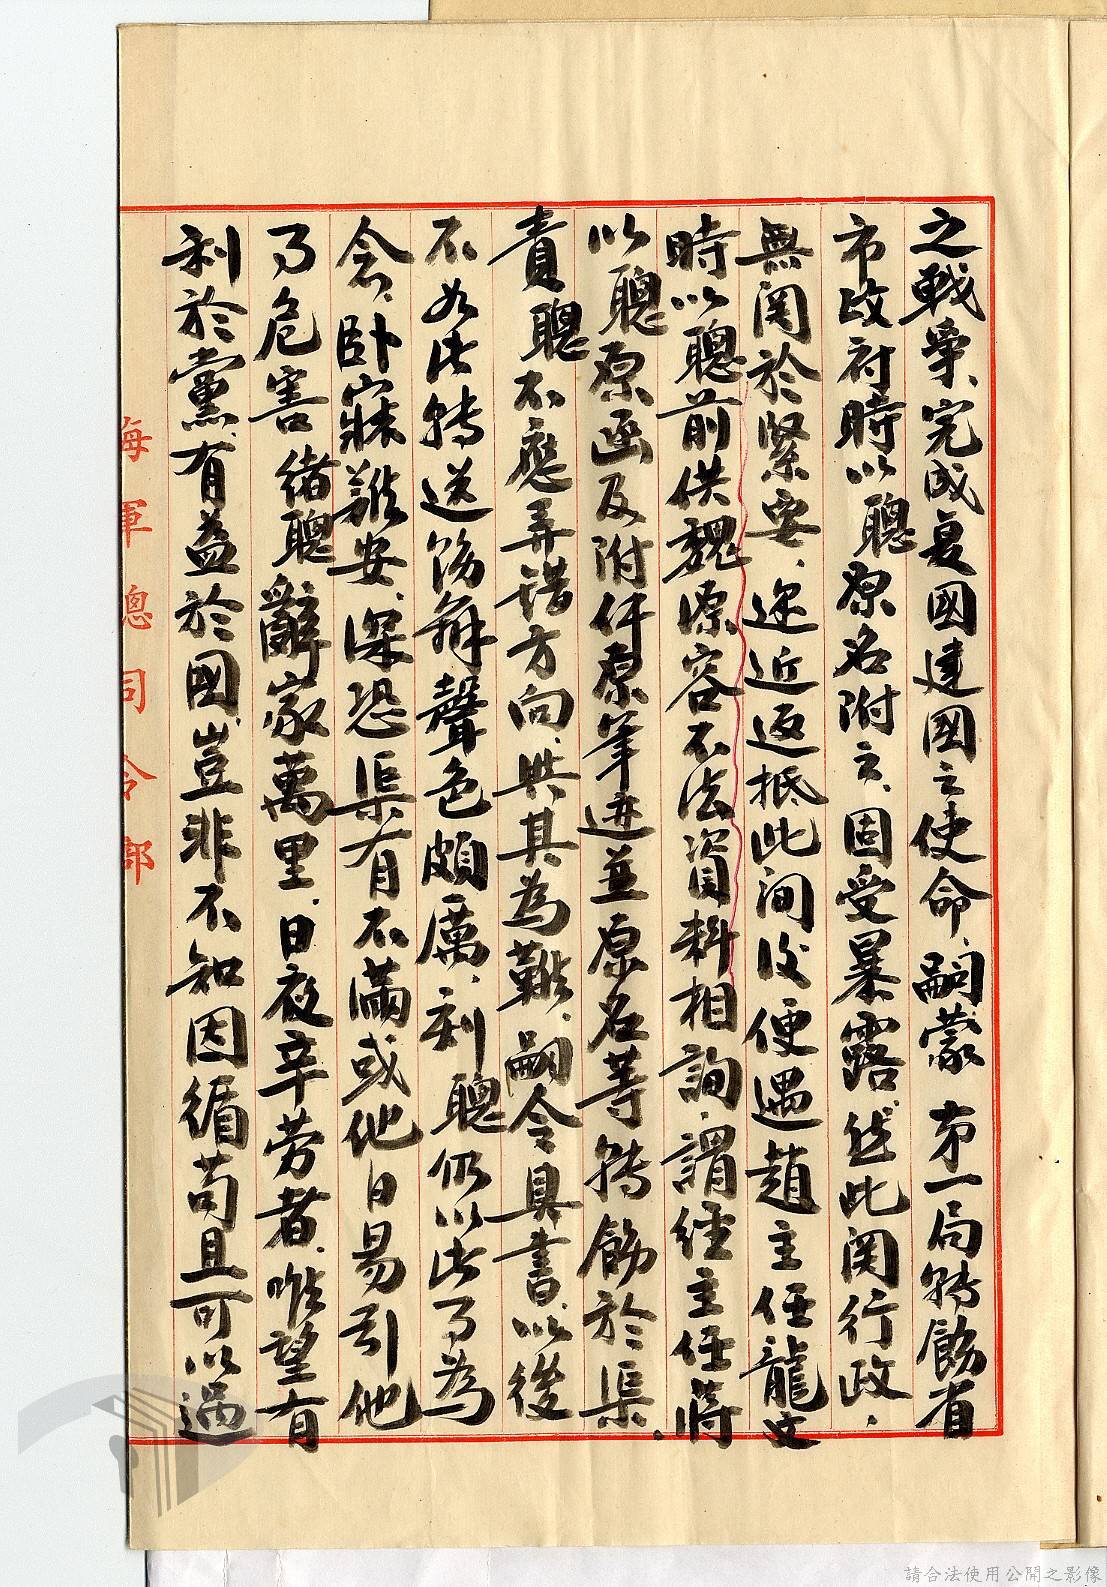 之戰爭、完成复國建國之使命、嗣蒙 第一局转飭省
市政府時以聰原名附云、固受暴露、然此関行政、
無関於緊要、迩近返抵此间後便遇趙主任龍文
時以聰前供魏源容不法資料相詢、謂經主任蔣
以聰原函及附件原筆迹並原名等转飭於渠、
責聰不應弄错方向、與其為難、嗣令具書、以後
不如此转送飭辦聲色頗厲、刻聰仍以此事為
念、卧寐難安、深恐渠有不滿或他日易引他
事危害緒聰辭家萬里、日夜辛劳者、唯望有
利於黨、有益於國、豈非不知因循苟且可以過
海軍總司令部
請合法使用公開之影像